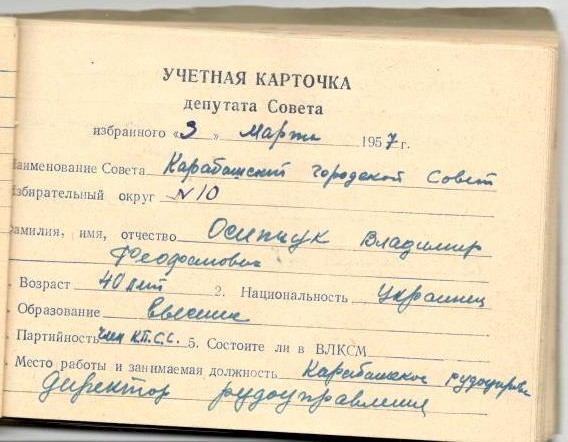 УЧЕТНАЯ КАРТОЧКА
депутата Совета
избранного «3» Марта 1957 г.
Наименование Совета Карабашский городской Совет
Избирательный округ N 10
фамилия, имя, отчество Осипчук Владимир
Феофанович
Возраст 40 лет 2. Национальность Украинец
Образование
Партийность член К.П.С.С. 5. Состоите ли в ВЛКСМ
Место работы и занимаемая должность Карабашское
директор рудоуправления